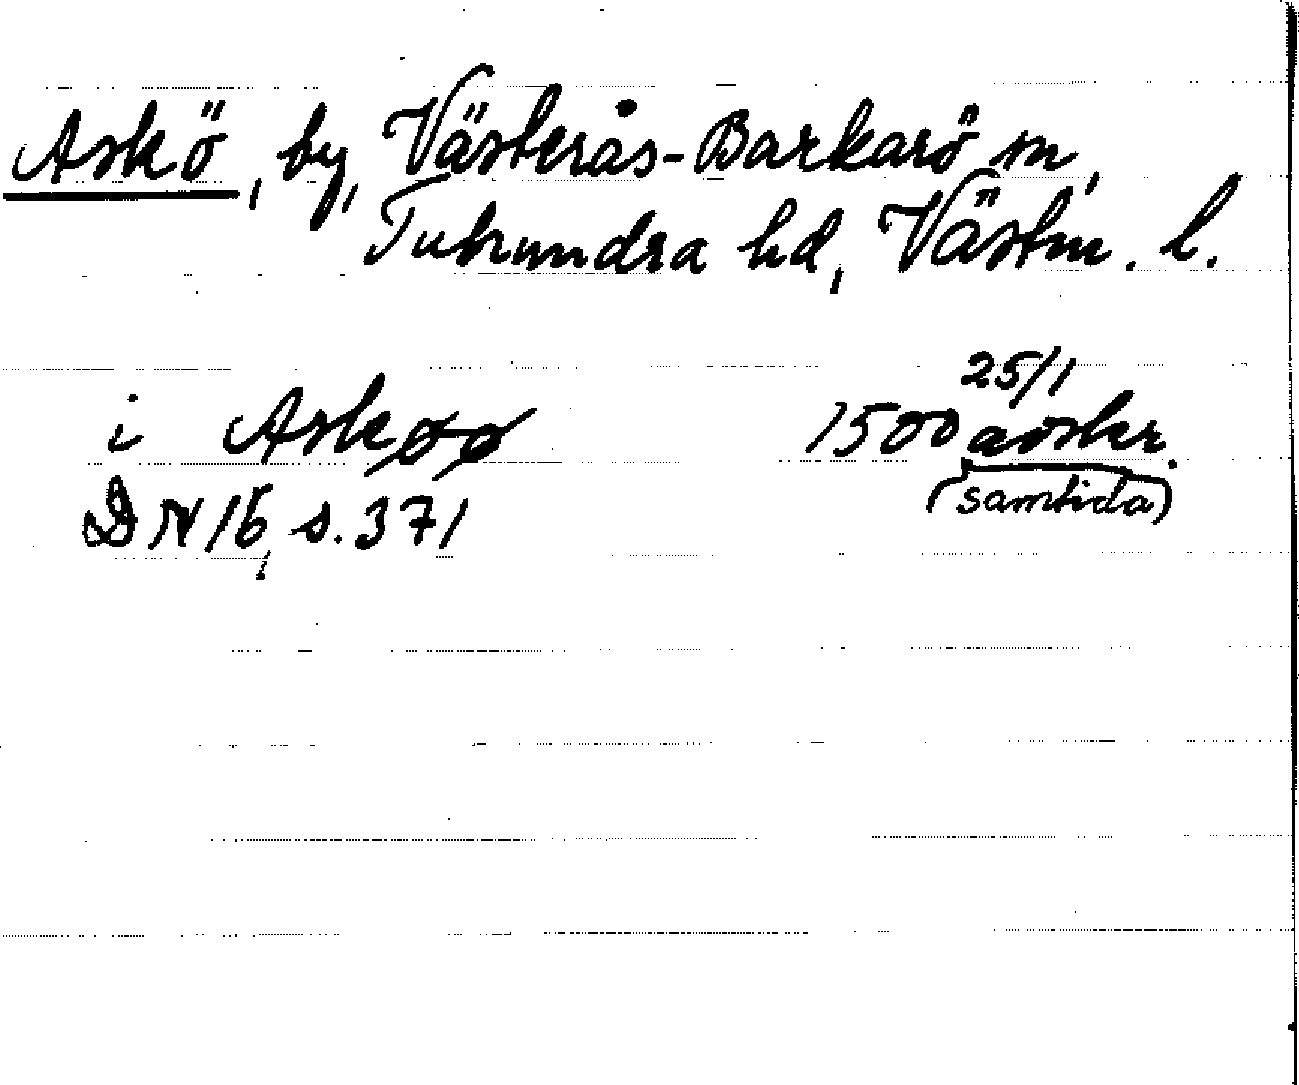 Askö, by, Västerås-Barkarö sn,
Tuhundra hd, Västm. l.
i Askøø 1500 25/1 avskr.
(samtida)
DN 16, s. 371